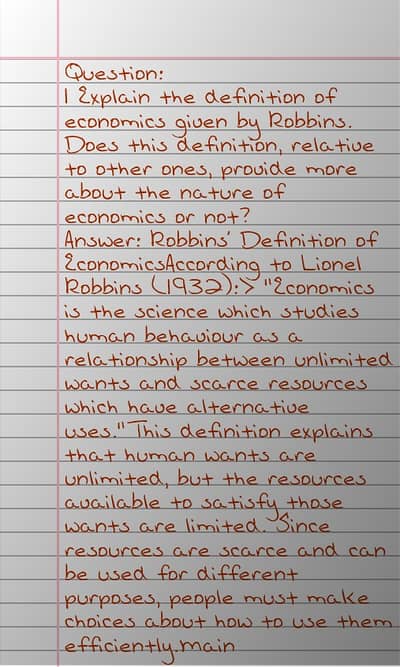 Question:
1 Explain the definition of
economics given by Robbins.
Does this definition, relative
to other ones, provide more
about the nature of
economics or not?
Answer: Robbins' Definition of
EconomicsAccording to Lionel
Robbins (1932):> "Economics
is the science which studies
human behaviour as a
relationship between unlimited
wants and scarce resources
which have alternative
uses." This definition explains
that human wants are
unlimited, but the resources
available to satisfy those
wants are limited. Since
resources are scarce and can
be used for different
purposes, people must make
choices about how to use them
efficiently.main